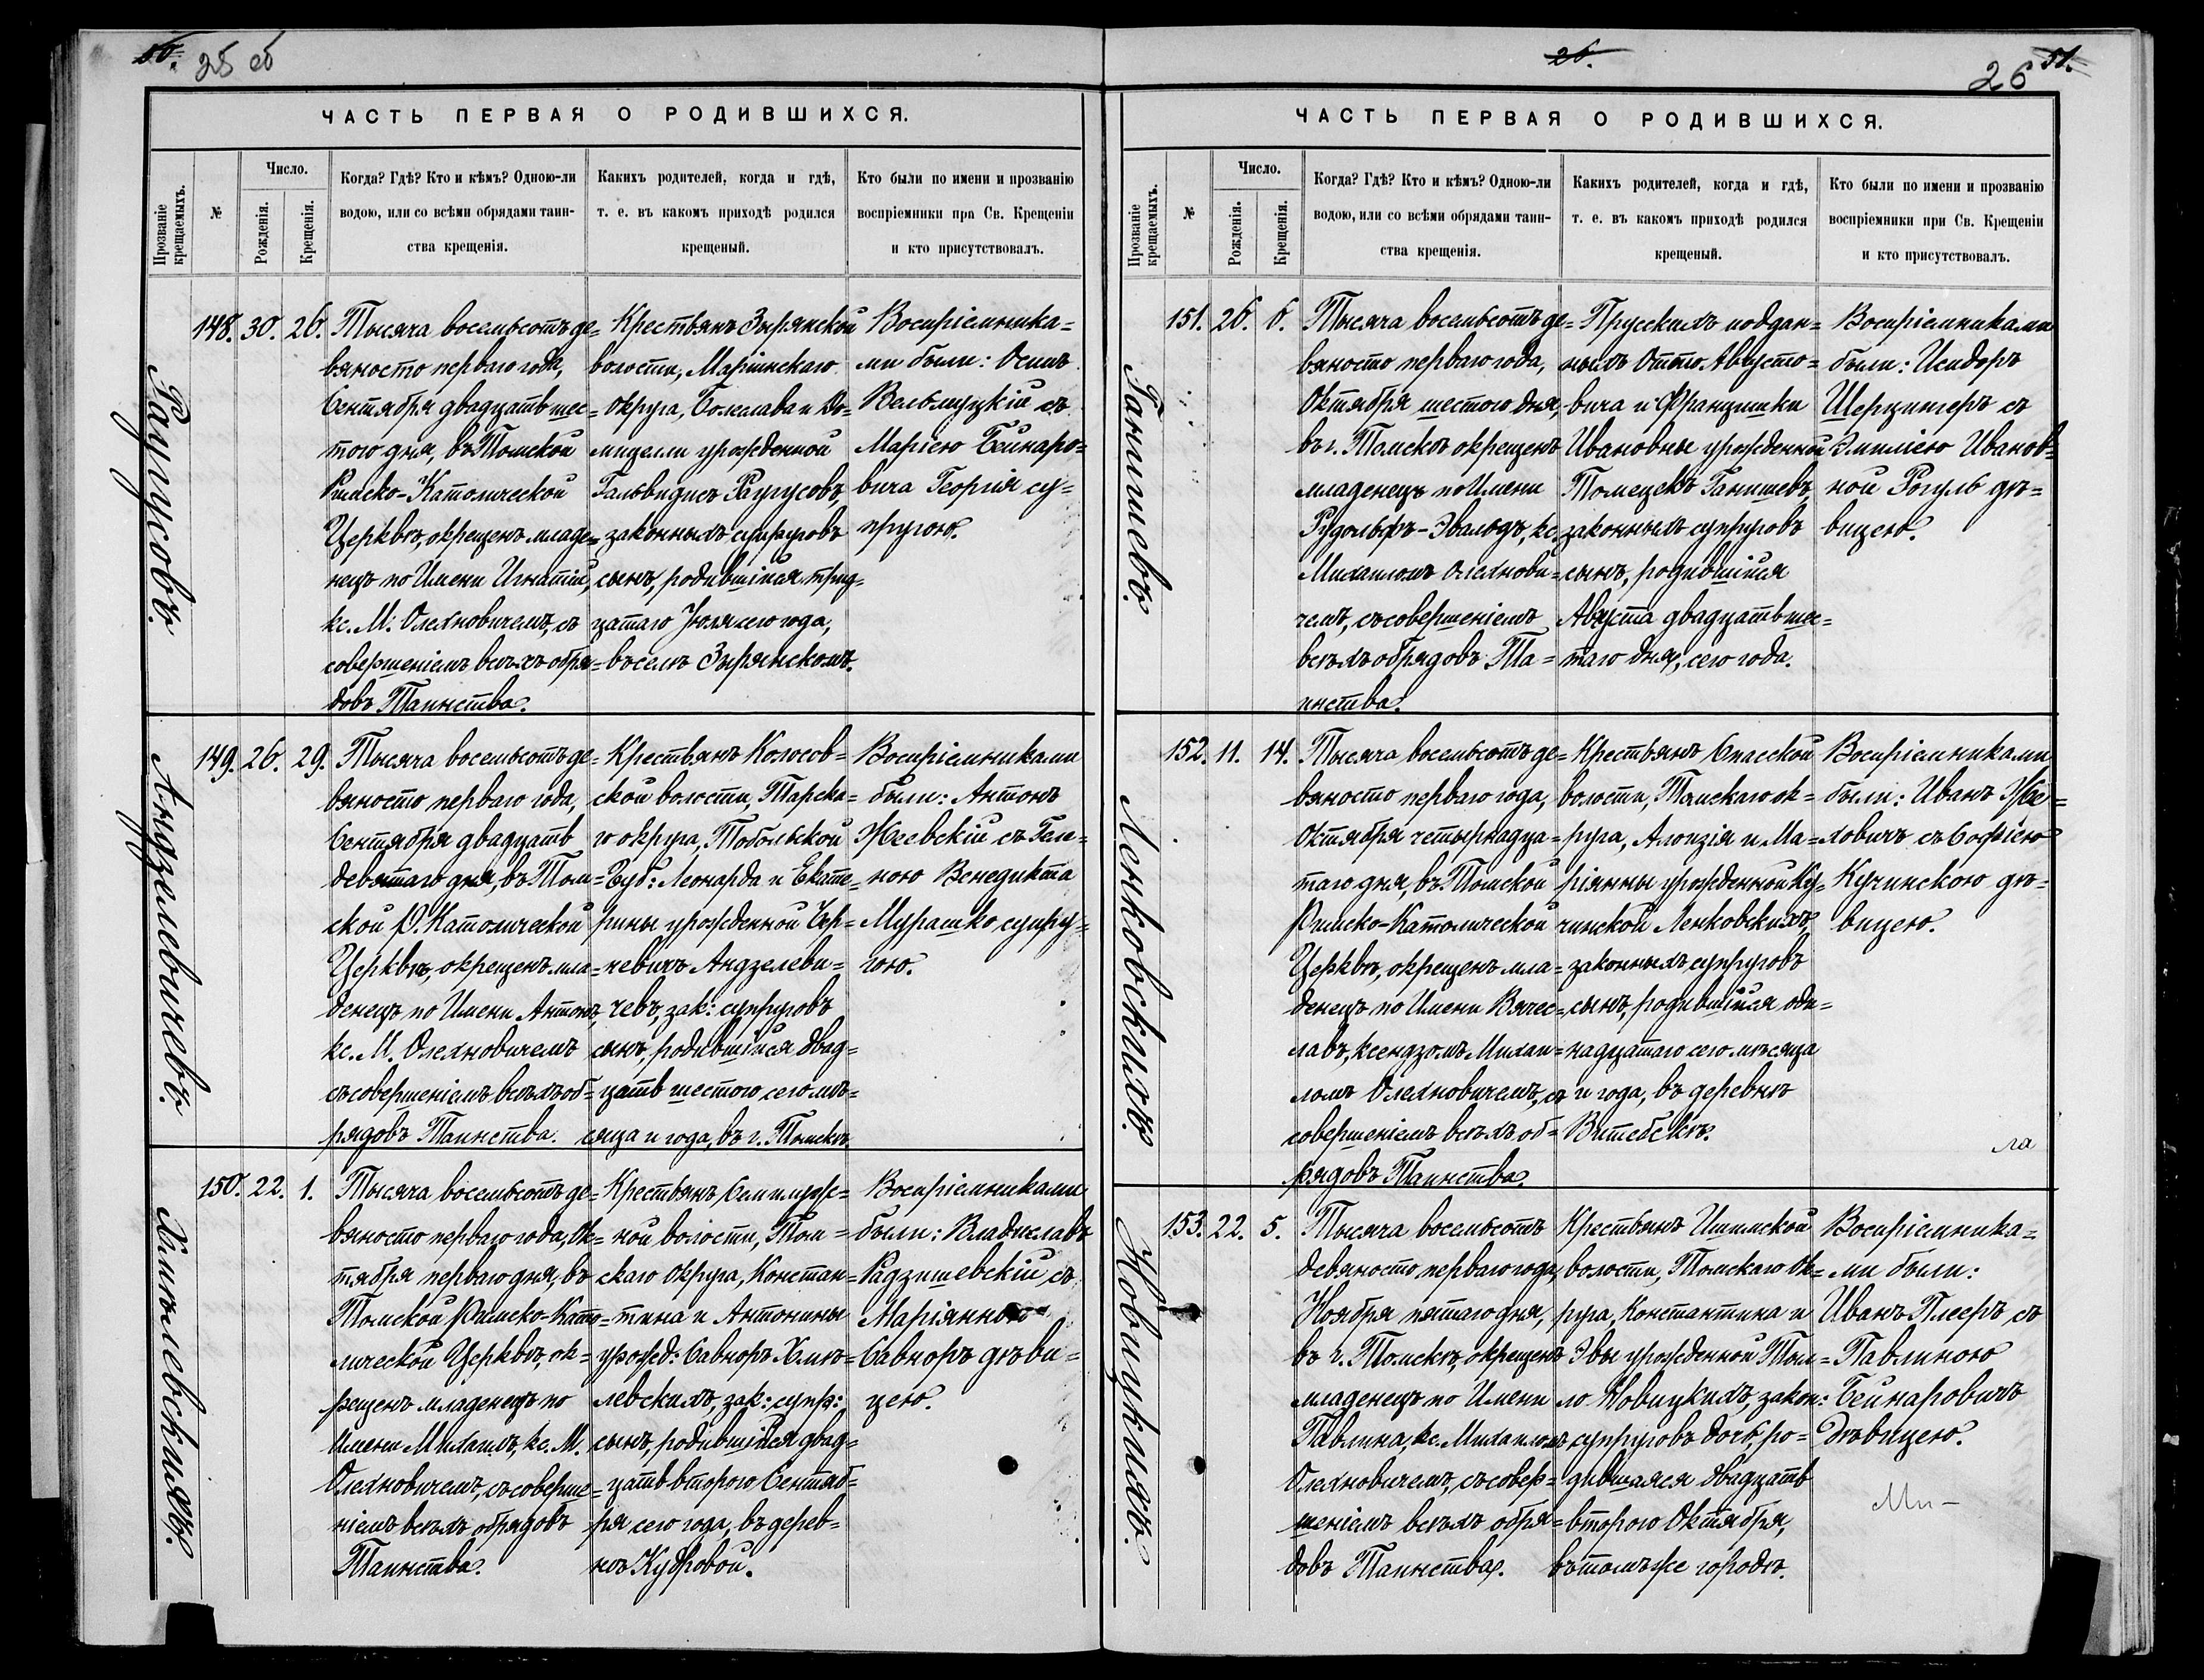 50.
25 об
ЧАСТЬ ПЕРВАЯ О РОДИВШИХСЯ.
Прозваніе крещаемыхъ.
№
Число.
Рожденія.
Крещенія.
Когда? Гдѣ? Кто и кѣмъ? Одною-ли
водою, или со всѣми обрядами таин-
ства крещенія.
Какихъ родителей, когда и гдѣ,
т. е. въ какомъ приходѣ родился
крещеный.
Кто были по имени и прозванію
воспріемники при Св. Крещеніи
и кто присутствовалъ.
Раугусовъ.
148. 30. 26.
Тысяча восемьсотъ де=
вяносто перваго года,
Сентября двадцать шес=
того дня, въ Томской
Римско-Католической
Церквѣ, окрещенъ младе=
нецъ по Имени Игнатій,
кс. М. Олехновичемъ, съ
совершеніемъ всѣхъ обря=
довъ Таинства.
Крестьянъ Зырянской
волости, Маріинскаго
округа, Болеслава и До=
мицели урожденной
Гальвидисъ Раугусовъ,
законныхъ супруговъ
сынъ, родившійся трид=
цатаго Іюля сего года,
въ селѣ Зырянскомъ.
Воспріемника=
ми были: Осипъ
Вельмуцкій съ
Маріею Бейнаро=
вича Георгія су=
пругою.
Андзелевичевъ.
149. 26. 29.
Тысяча восемьсотъ де=
вяносто перваго года,
Сентября двадцать
девятаго дня, въ Том=
ской Р. Католической
Церквѣ, окрещенъ мла=
денецъ по Имени Антонъ,
кс. М. Олехновичемъ
съ совершеніемъ всѣхъ об=
рядовъ Таинства.
Крестьянъ Колосов=
ской волости, Тарска=
го округа, Тобольской
Губ: Леонарда и Екате=
рины урожденной Чер=
невичъ Андзелеви=
чевъ, зак: супруговъ
сынъ, родившійся двад=
цать шестого сего мѣ=
сяца и года, въ г. Томскѣ.
Воспріемниками
были: Антонъ
Жеевскій съ Геле=
ною Венедикта
Мурашко супру=
гою.
Хмѣлевскихъ.
150. 22. 1.
Тысяча восемьсотъ де=
вяносто перваго года, Ок=
тября перваго дня, въ
Томской Римско-Като=
лической Церквѣ, ок=
рещенъ младенецъ по
Имени Михаилъ, кс. М.
Олехновичемъ, съ соверше=
ніемъ всѣхъ обрядовъ
Таинства.
Крестьянъ Семилуж=
ной волости, Том=
скаго Округа, Констан=
тина и Антонины
урожд: Савноръ Хмѣ=
левскихъ, зак: супр:
сынъ, родившійся двад=
цать второго Сентяб=
ря сего года, въ дерев=
нѣ Кудровой.
Воспріемниками
были: Владиславъ
Радзишевскій съ
Маріанною
Савноръ дѣви=
цею.
26.
26
51.
ЧАСТЬ ПЕРВАЯ О РОДИВШИХСЯ.
Прозваніе крещаемыхъ.
№
Число.
Рожденія.
Крещенія.
Когда? Гдѣ? Кто и кѣмъ? Одною-ли
водою, или со всѣми обрядами таин-
ства крещенія.
Какихъ родителей, когда и гдѣ,
т. е. въ какомъ приходѣ родился
крещеный.
Кто были по имени и прозванію
воспріемники при Св. Крещеніи
и кто присутствовалъ.
Ганишевъ.
151. 26. 6.
Тысяча восемьсотъ де=
вяносто перваго года,
Октября шестого дня,
въ г. Томскѣ окрещенъ
младенецъ по Имени
Рудольфъ-Эвальдъ, кс.
Михаиломъ Олехнови=
чемъ, съ совершеніемъ
всѣхъ обрядовъ Та=
инства.
Прусскихъ поддан=
ныхъ Отто Августо=
вича и Францишки
Ивановны урожденной
Томецекъ Ганишевъ,
законныхъ супруговъ
сынъ, родившійся
Августа двадцать шес=
таго дня, сего года.
Воспріемниками
были: Исидоръ
Шерцингеръ съ
Эмиліею Иванов=
ной Рогуль дѣ=
вицею.
Ленковскихъ.
152. 11. 14.
Тысяча восемьсотъ де=
вяносто перваго года,
Октября четырнадца=
таго дня, въ Томской
Римско-Католической
Церквѣ, окрещенъ мла=
денецъ по Имени Вячес=
лавъ, ксендзомъ Михаи=
ломъ Олехновичемъ, съ
совершеніемъ всѣхъ об=
рядовъ Таинства.
Крестьянъ Спасской
волости, Томскаго ок=
руга, Алоизія и Ма=
ріянны урожденной Ку=
чинской Ленковскихъ,
законныхъ супруговъ
сынъ, родившійся оди=
надцатаго сего мѣсяца
и года, въ деревнѣ
Витебскѣ.
Воспріемниками
были: Иванъ Же=
ловичъ съ Софіею
Кучинскою дѣ=
вицею.
ла
Новицкихъ.
153. 22. 5.
Тысяча восемьсотъ
девяносто перваго года,
Ноября пятаго дня,
въ г. Томскѣ, окрещенъ
младенецъ по Имени
Павлина, кс. Михаиломъ
Олехновичемъ, съ совер=
шеніемъ всѣхъ обря=
довъ Таинства.
Крестьянъ Ишимской
волости, Томскаго Ок=
руга, Константина и
Эвы урожденной Том=
ло Новицкихъ, закон:
супруговъ дочь, ро=
дившаяся двадцать
второго Октября,
въ томъ же городѣ.
Воспріемника=
ми были:
Иванъ Плееръ съ
Павлиною
Бейнаровичъ
Дѣвицею.
Ми-